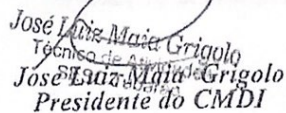 José Luiz Maia Grigolo
Técnico de
José Luiz Maia Grigolo
Presidente do CMDI